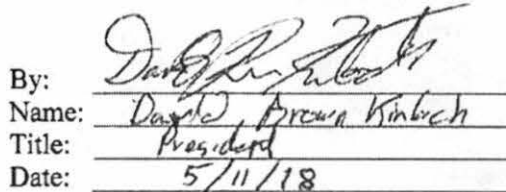 By:
Name: David Brown Kinloch
Title: President
Date: 5/11/18